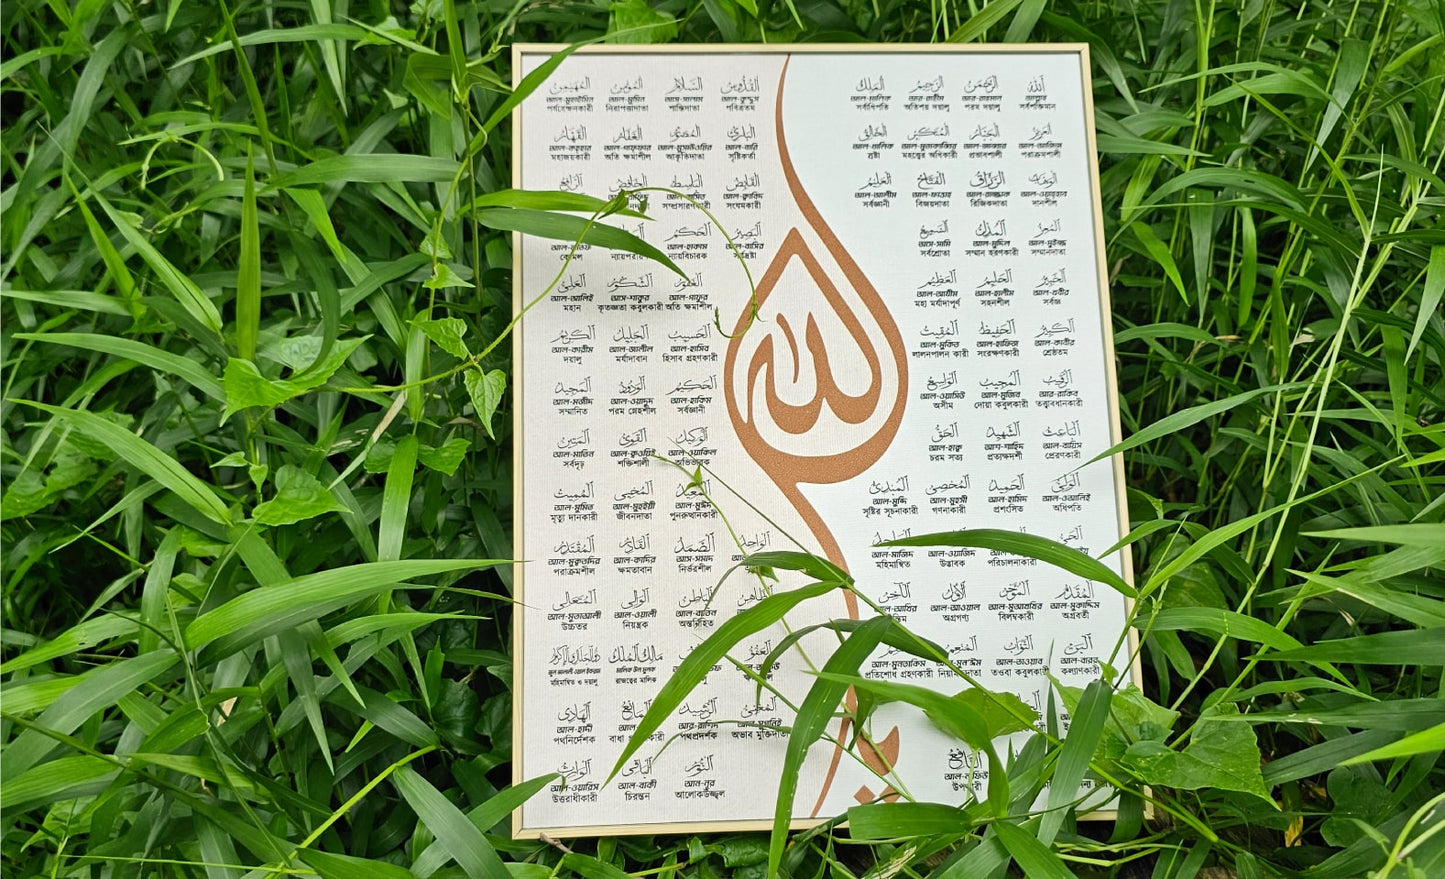 الله الرحمن الرحيم الملك
আল্লাহ আর-রাহমান আর-রাহীম আল-মালিক
সর্বশক্তিমান পরম দয়ালু অতিশয় দয়ালু সর্বাধিপতি
القدوس السلام المؤمن المهيمن
আল-কুদ্দুস আস-সালাম আল-মুমিন আল-মুহাইমিন
পবিত্রতম শান্তিদাতা নিরাপত্তাদাতা পর্যবেক্ষনকারী
العزيز الجبار المتكبر الخالق
আল-আজিজ আল-জাব্বার আল-মুতাকাব্বির আল-খালিক
পরাক্রমশালী প্রভাবশালী মহত্ত্বের অধিকারী স্রষ্টা
البارئ المصور الغفار القهار
আল-বারি আল-মুসাউওয়ির আল-গাফ্ফার আল-কাহ্হার
সৃষ্টিকর্তা আকৃতিদাতা অতি ক্ষমাশীল মহাজয়কারী
الوهاب الرزاق الفتاح العليم
আল-ওয়াহ্হাব আর-রাজ্জাক আল-ফাত্তাহ আল-আলীম
দানশীল রিজিকদাতা বিজয়দাতা সর্বজ্ঞানী
القابض الباسط الخافض الرافع
আল-ক্বাবিদ
সংযমকারী সম্প্রসারণকারী
المعز المذل السميع
আল-মুইজ্জ আল-মুদিল আস-সামি
সম্মানদাতা সম্মান হরণকারী সর্বশ্রোতা
البصير الحكم
আল-বাসির আল-হাকাম
ন্যায়বিচারক
কোমল
الخبير الحليم العظيم
আল-খবীর আল-হালীম আল-আযীম
সর্বজ্ঞ সহনশীল মহা মর্যাদাপূর্ণ
الغفور الشكور العلي
আল-গাফুর আস-শাকুর আল-আলিই
অতি ক্ষমাশীল কৃতজ্ঞতা কবুলকারী মহান
الكبير الحفيظ المقيت
আল-কাবীর আল-হাফিজ আল-মুকিত
শ্রেষ্ঠতম সংরক্ষণকারী লালনপালন কারী
الحسيب الجليل الكريم
আল-হাসিব আল-জালীল আল-কারীম
হিসাব গ্রহণকারী মর্যাদাবান দয়ালু
الرقيب المجيب الواسع
আর-রাকিব আল-মুজিব আল-ওয়াসিউ
তত্ত্বাবধানকারী দোয়া কবুলকারী অসীম
الحكيم الودود المجيد
আল-হাকিম আল-ওয়াদুদ আল-মজীদ
সর্বজ্ঞানী পরম স্নেহশীল সম্মানিত
الباعث الشهيد الحق
আল-বায়িস আশ-শাহিদ আল-হাক্ব
প্রেরণকারী প্রত্যক্ষদর্শী চরম সত্য
الوكيل القوي المتين
আল-ওয়াকিল আল-কুওয়িই আল-মাতিন
অভিভাবক শক্তিশালী সর্বদৃঢ়
الولي الحميد المحصي المبدئ
আল-ওআলিই আল-হামিদ আল-মুহসী আল-মুব্দি
অধিপতি প্রশংসিত গণনাকারী সৃষ্টির সূচনাকারী
المعيد المحيي المميت
আল-মুঈদ আল-মুহইয়ী আল-মুমিত
পুনরুত্থানকারী জীবনদাতা মৃত্যু দানকারী
আল-ওয়াজিদ আল-মাজিদ
পরিচালনাকারী উদ্ভাবক মহিমান্বিত
الواحد الصمد القادر المقتدر
আস-সামাদ আল-কাদির আল-মুকতাদির
নির্ভরশীল ক্ষমতাবান পরাক্রমশীল
المقدم المؤخر الأول الآخر
আল-মুকাদ্দিম আল-মুআখখির আল-আওয়াল আল-আখির
অগ্রবর্তী বিলম্বকারী অগ্রগণ্য
الظاهر الباطن الوالي المتعالي
আল-বাতিন আল-ওয়ালী আল-মুতাআলী
অন্তর্নিহিত নিয়ন্ত্রক উচ্চতর
البر التواب المنعم
আল-বারর আল-তাওয়াব আল-মুন'ঈম আল-মুনতাকিম
কল্যাণকারী তওবা কবুলকারী প্রতিশোধ গ্রহণকারী
العفو مالك الملك ذو الجلال والإكرام
মালিক উল মুলক
রাজত্বের মালিক মহিমান্বিত ও দয়ালু
المغني الرشيد المانع الهادي
আর-রাশিদ আল-হাদী
অভাব মুক্তিদাতা পথপ্রদর্শক পথনির্দেশক
النافع
উপকারী
النور الباقي الوارث
আন-নূর আল-বাকী আল-ওয়ারিস
আলোকউজ্জ্বল চিরন্তন উত্তরাধীকারী
الله